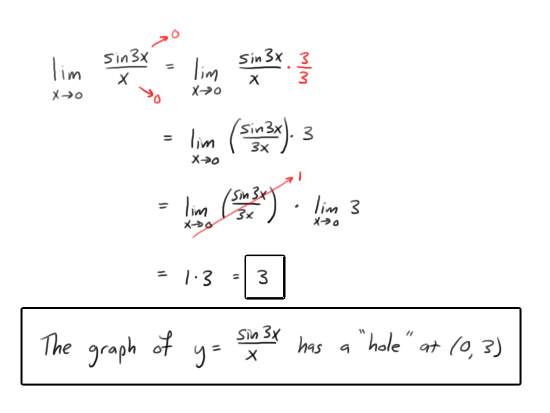 lim x→0 sin3x/x →0 →0 = lim x→0 sin3x/x · 3/3
= lim x→0 (sin3x/3x) · 3
= lim x→0 (sin3x/3x) →1 · lim x→0 3
= 1·3 = 3
The graph of y = sin3x/x has a "hole" at (0, 3)